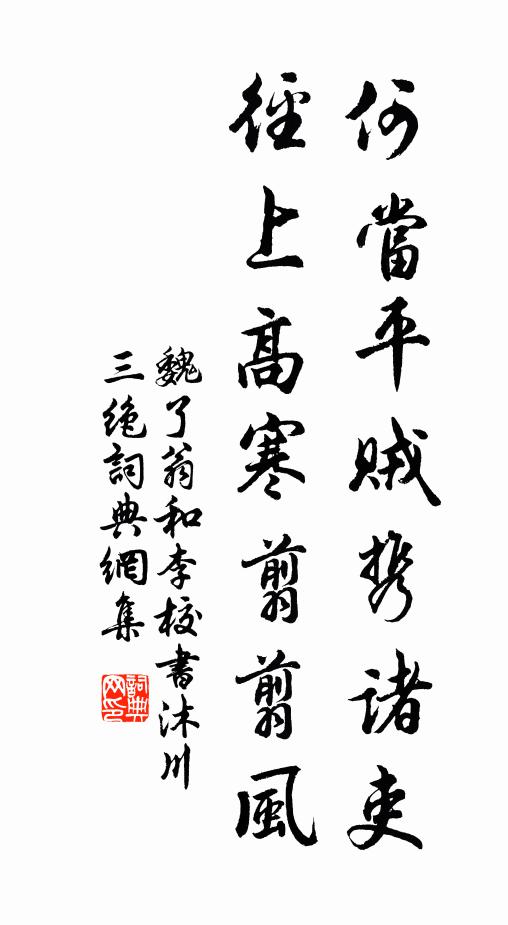 何當平賊攜諸吏
徑上高寒翦翦風
魏了翁和李校書沐川
三絶詞典網集
詞典
网印